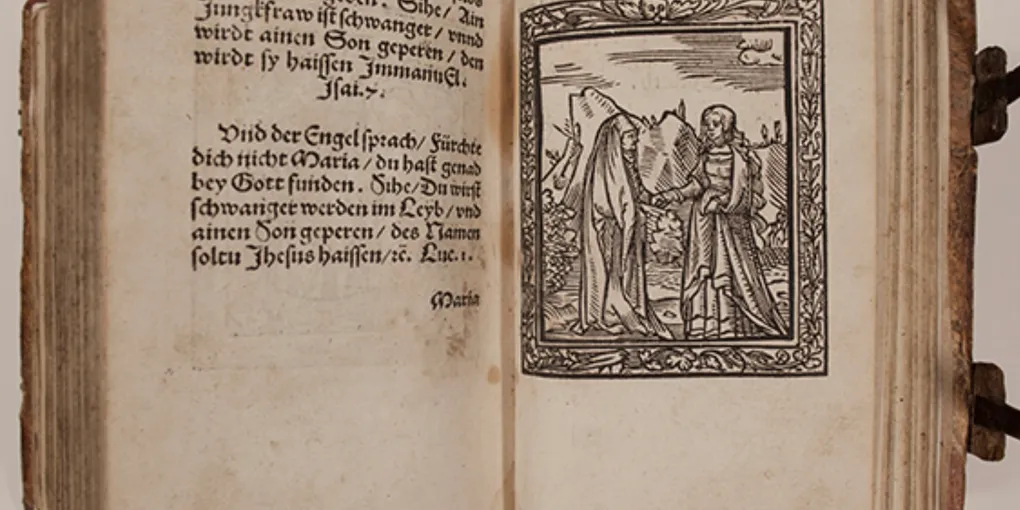 Sihe/ Ain
Jungkfraw ist schwanger/ vnnd
wirdt ainen Son geperen/ den
wirdt sy haissen Immanuel.
Isai.7.
Vnd der Engel sprach/ Fürchte
dich nicht Maria/ du hast genad
bey Gott funden. Sihe/ Du wirst
schwanger werden im Leyb/ vnd
ainen Son geperen/ des Namen
soltu Jhesus haissen/ ꝛc̄. Luc.1.
Maria